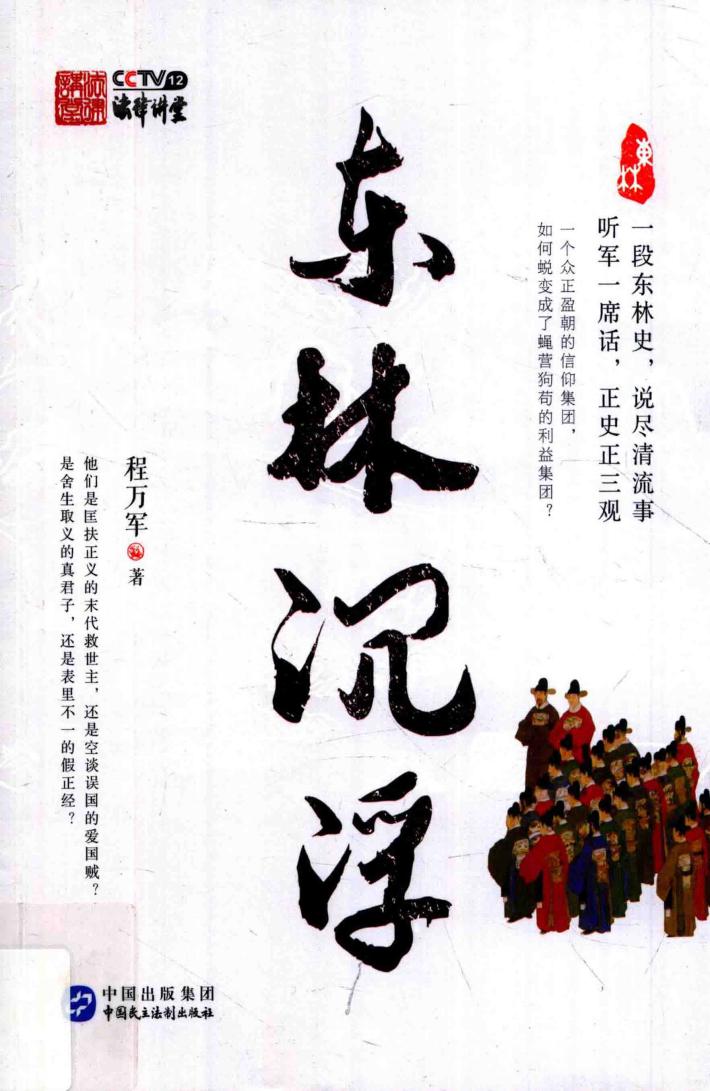 法律讲堂
CCTV 12
法律讲堂
東林
一段东林史，说尽清流事
听军一席话，正史正三观
一个众正盈朝的信仰集团，
如何蜕变成了蝇营狗苟的利益集团？
东林沉浮
程万军 著
他们是匡扶正义的末代救世主，还是空谈误国的爱国贼？
是舍生取义的真君子，还是表里不一的假正经？
中国出版集团
中国民主法制出版社